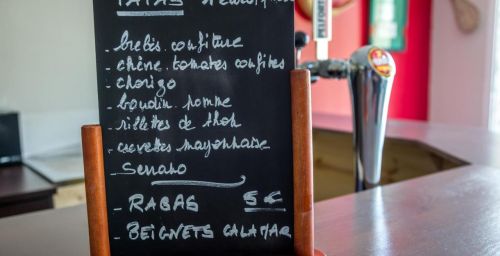 TAPAS
- brebis. confiture
- chèvre. tomates confites
- chorizo
- boudin. pomme
- rillettes de thon
- crevettes mayonnaise
- Serrano
- RABAS 5€
- BEIGNETS CALAMAR